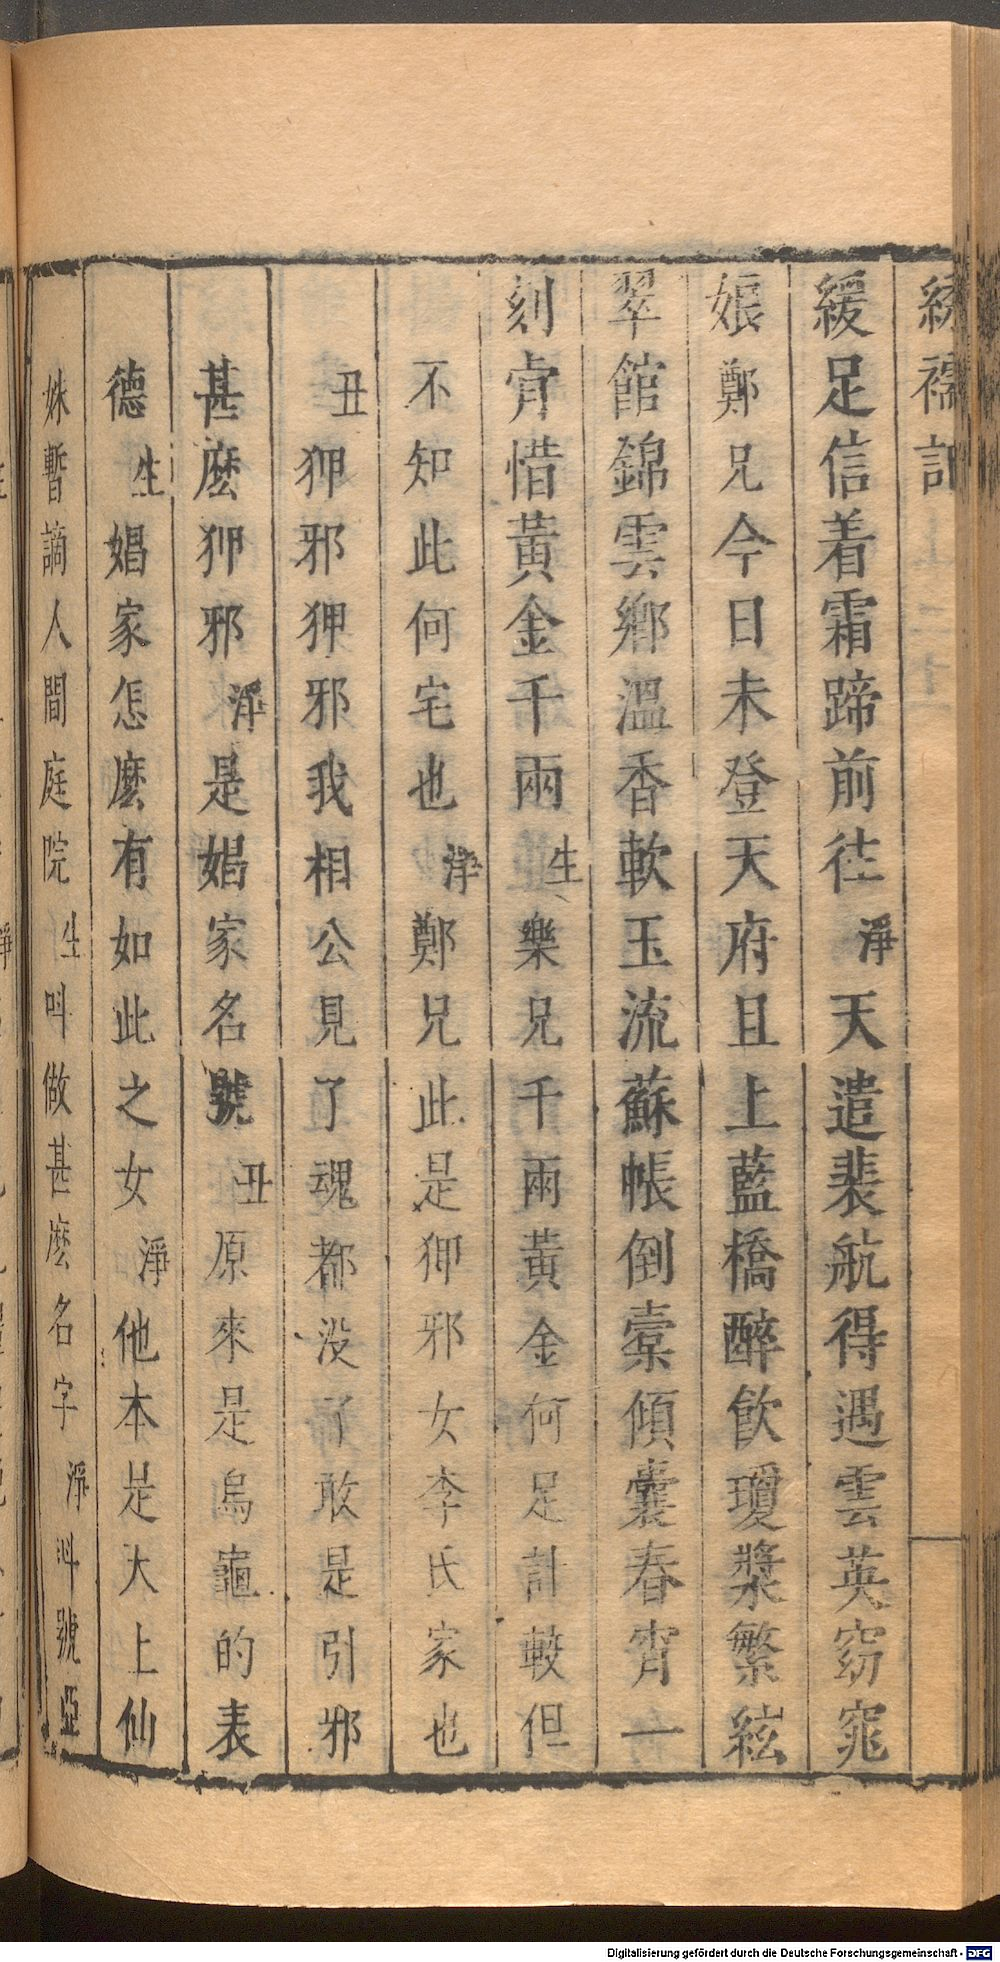 繡襦記
緩足信着霜蹄前往淨天遣裴航得遇雲英窈窕
娘鄭兄今日未登天府且上藍橋醉飲瓊漿繁絃
翠館錦雲鄉溫香軟玉流蘇帳倒橐傾囊春宵一
刻肯惜黃金千兩生樂兄千兩黃金何足計較但
不知此何宅也淨鄭兄此是狎邪女李氏家也
丑狎邪狎邪我相公見了魂都没了敢是引邪
甚麽狎邪淨是娼家名號丑原來是烏龜的表
德生娼家怎麽有如此之女淨他本是大上仙
姝暫謫人間庭院生叫做甚麽名字淨叫號亞
Digitalisierung gefördert durch die Deutsche Forschungsgemeinschaft - DFG